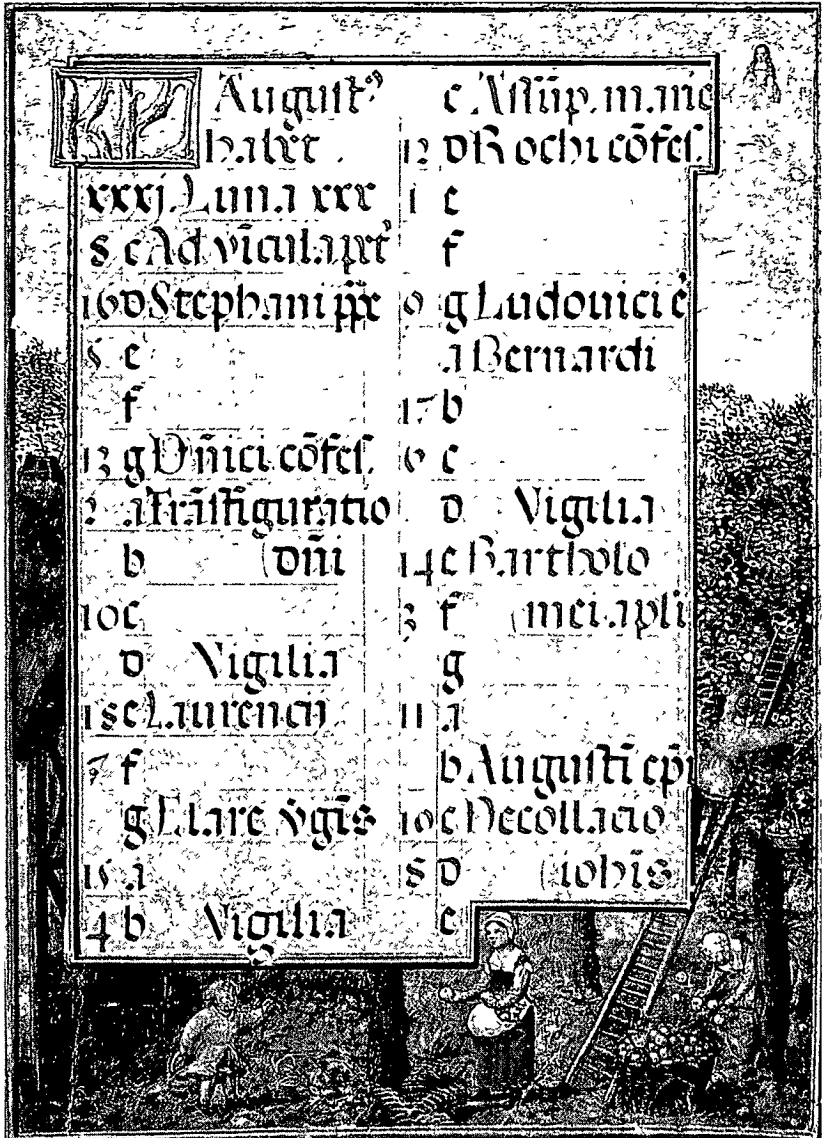 KL Augustꝰ
habet .
xxxj. Luna xxx
8 c Ad vīcula pet'
16 d Stephani pp̄e
5 e
f
13 g Dn̄ici cōfes.
2 a Trāsfiguratio
b (dn̄i
10 c
d Vigilia
18 e Laurencij
7 f
g Clare v̄gīs
15 a
4 b Vigilia
c Assūp. m. marie
12 d Rochi cōfes.
1 e
f
9 g Ludovici
a Bernardi
17 b
6 c
d Vigilia
14 e Bartholo
3 f (mei apli
g
11 a
b Augustī ep̄i
c Decollacio
8 d (iohīs
e